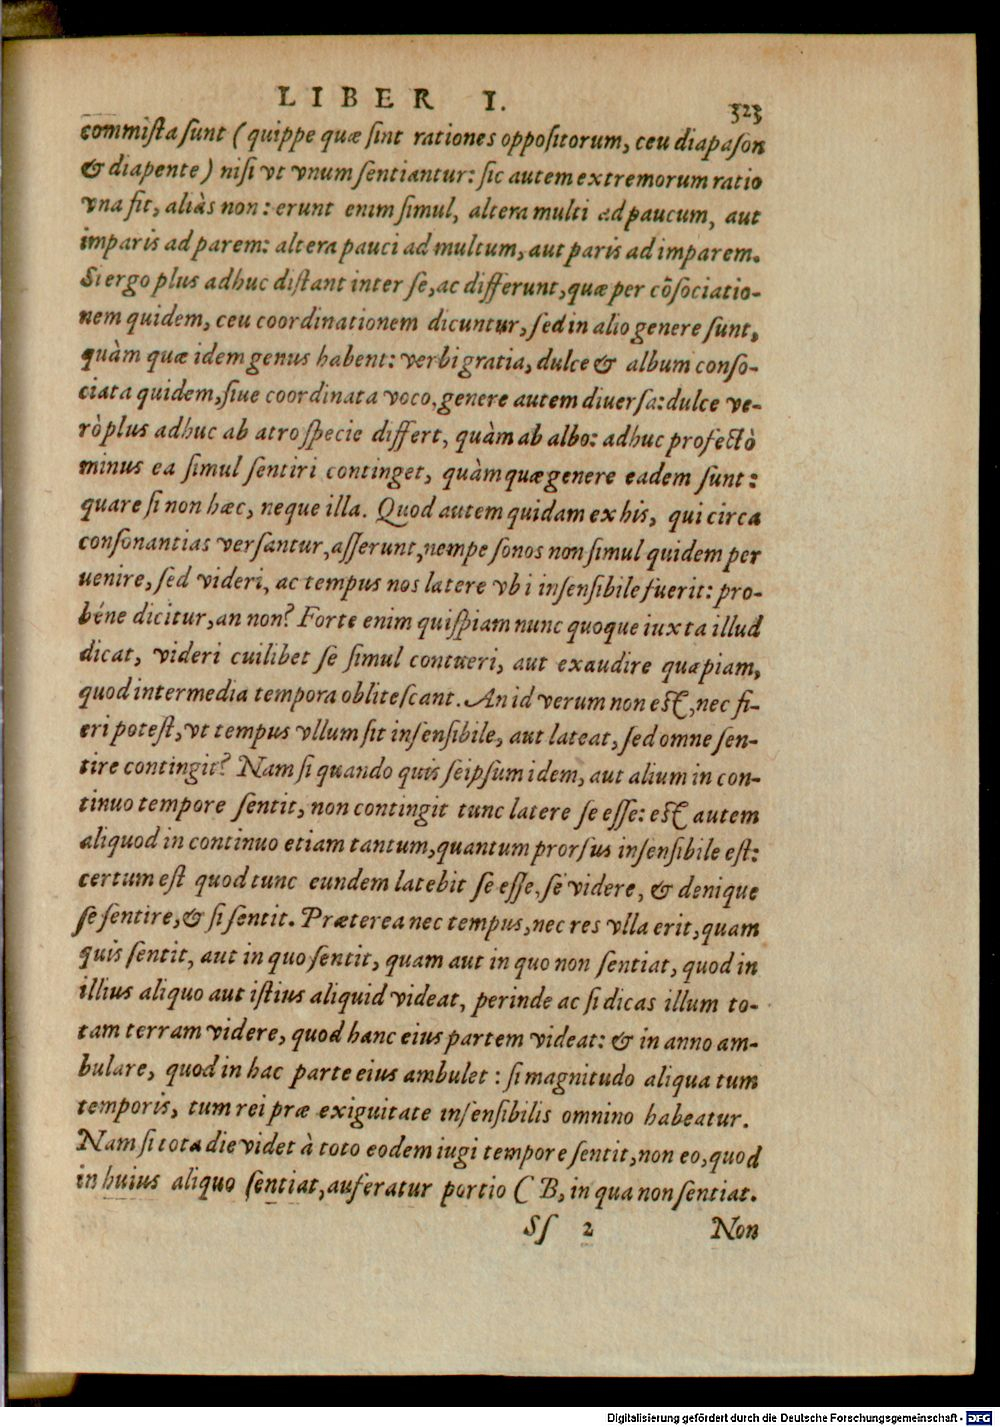 LIBER I. 323
commista sunt (quippe quæ sint rationes oppositorum, ceu diapason
& diapente) nisi vt vnum sentiantur: sic autem extremorum ratio
vna fit, aliàs non: erunt enim simul, altera multi ad paucum, aut
imparis ad parem: altera pauci ad multum, aut paris ad imparem.
Si ergo plus adhuc distant inter se, ac differunt, quæ per cõsociatio-
nem quidem, ceu coordinationem dicuntur, sed in alio genere sunt,
quàm quæ idem genus habent: verbi gratia, dulce & album conso-
ciata quidem, siue coordinata voco, genere autem diuersa: dulce ve-
rò plus adhuc ab atro specie differt, quàm ab albo: adhuc profectò
minus ea simul sentiri continget, quàm quæ genere eadem sunt:
quare si non hæc, neque illa. Quod autem quidam ex his, qui circa
consonantias versantur, asserunt, nempe sonos non simul quidem per
uenire, sed videri, ac tempus nos latere vbi insensibile fuerit: pro-
béne dicitur, an non? Forte enim quispiam nunc quoque iuxta illud
dicat, videri cuilibet se simul contueri, aut exaudire quæpiam,
quod intermedia tempora oblitescant. An id verum non est, nec fi-
eri potest, vt tempus vllum sit insensibile, aut lateat, sed omne sen-
tire contingit? Nam si quando quis seipsum idem, aut alium in con-
tinuo tempore sentit, non contingit tunc latere se esse: est autem
aliquod in continuo etiam tantum, quantum prorsus insensibile est:
certum est quod tunc eundem latebit se esse, se videre, & denique
se sentire, & si sentit. Præterea nec tempus, nec res vlla erit, quam
quis sentit, aut in quo sentit, quam aut in quo non sentiat, quod in
illius aliquo aut istius aliquid videat, perinde ac si dicas illum to-
tam terram videre, quod hanc eius partem videat: & in anno am-
bulare, quod in hac parte eius ambulet: si magnitudo aliqua tum
temporis, tum rei præ exiguitate insensibilis omnino habeatur.
Nam si tota die videt à toto eodem iugi tempore sentit, non eo, quod
in huius aliquo sentiat, auferatur portio C B, in qua non sentiat.
Ss 2 Non
Digitalisierung gefördert durch die Deutsche Forschungsgemeinschaft - DFG